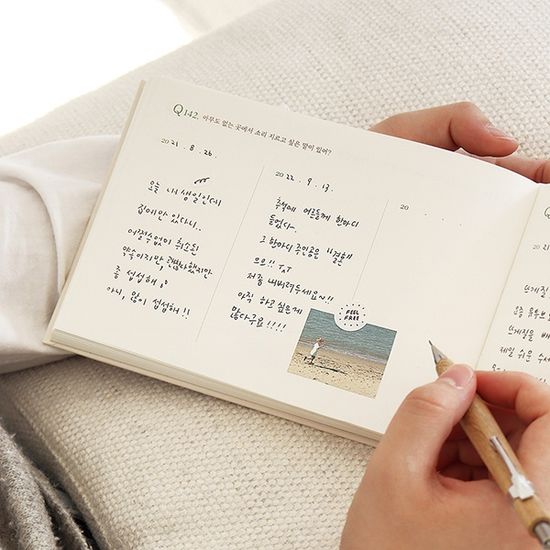 Q142. 아무도 없는 곳에서 소리 지르고 싶은 말이 있어?
2021. 8. 26.
오늘 내 생일인데
집에만 있다니..
어쩔수없이 취소된
약속이지만, 괜찮다했지만
좀 섭섭해,
아니, 많이 섭섭해!!
2022. 9. 13.
추석에 어른들께 한마디
들었다..
그 한마디 주인공은 결혼
으으!! TㅅT
저좀 내버려두세요!!
아직 하고싶은게
많다구요!!!!
FEEL
FREE
20 . . .
Q
20 2
요즘 유튜브
뜨개질을 배
제일 쉬운 수세